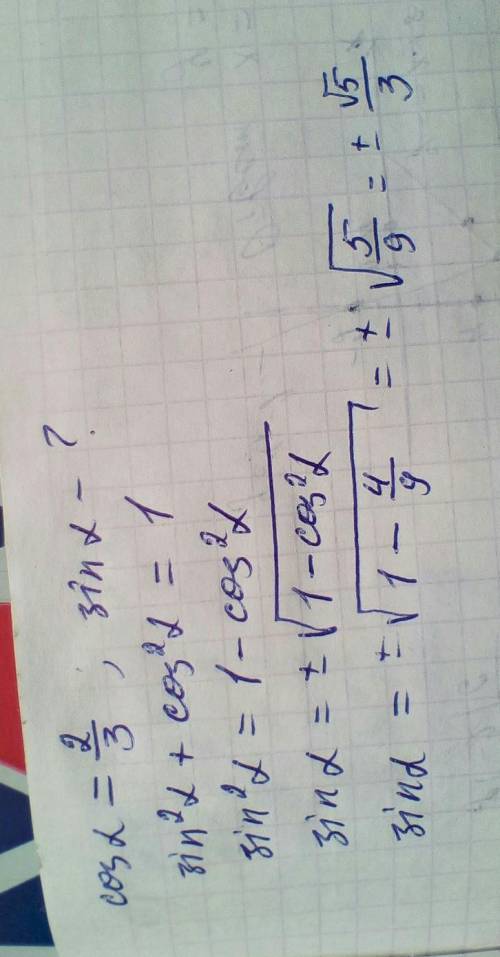 cos α = 2/3 , sin α - ?
sin²α + cos²α = 1
sin²α = 1 - cos²α
sin α = ± √(1 - cos²α)
sin α = ± √(1 - 4/9) = ± √(5/9) = ± √5/3